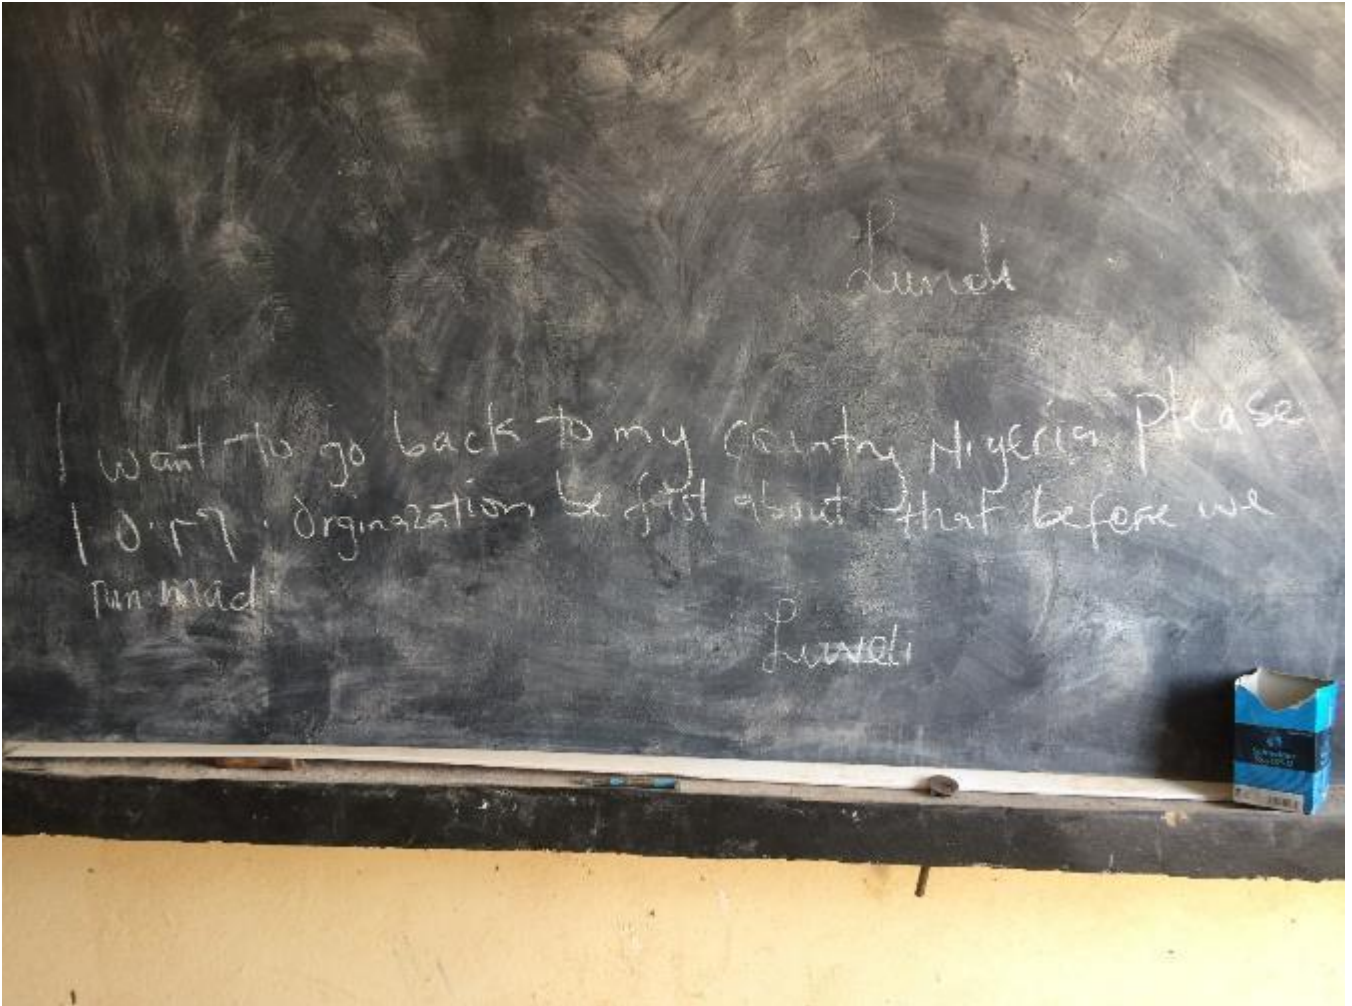 Lundi
I want to go back to my country Nigeria please
I.O.M. Orginazation be fast about that before we
run mad.
Lundi